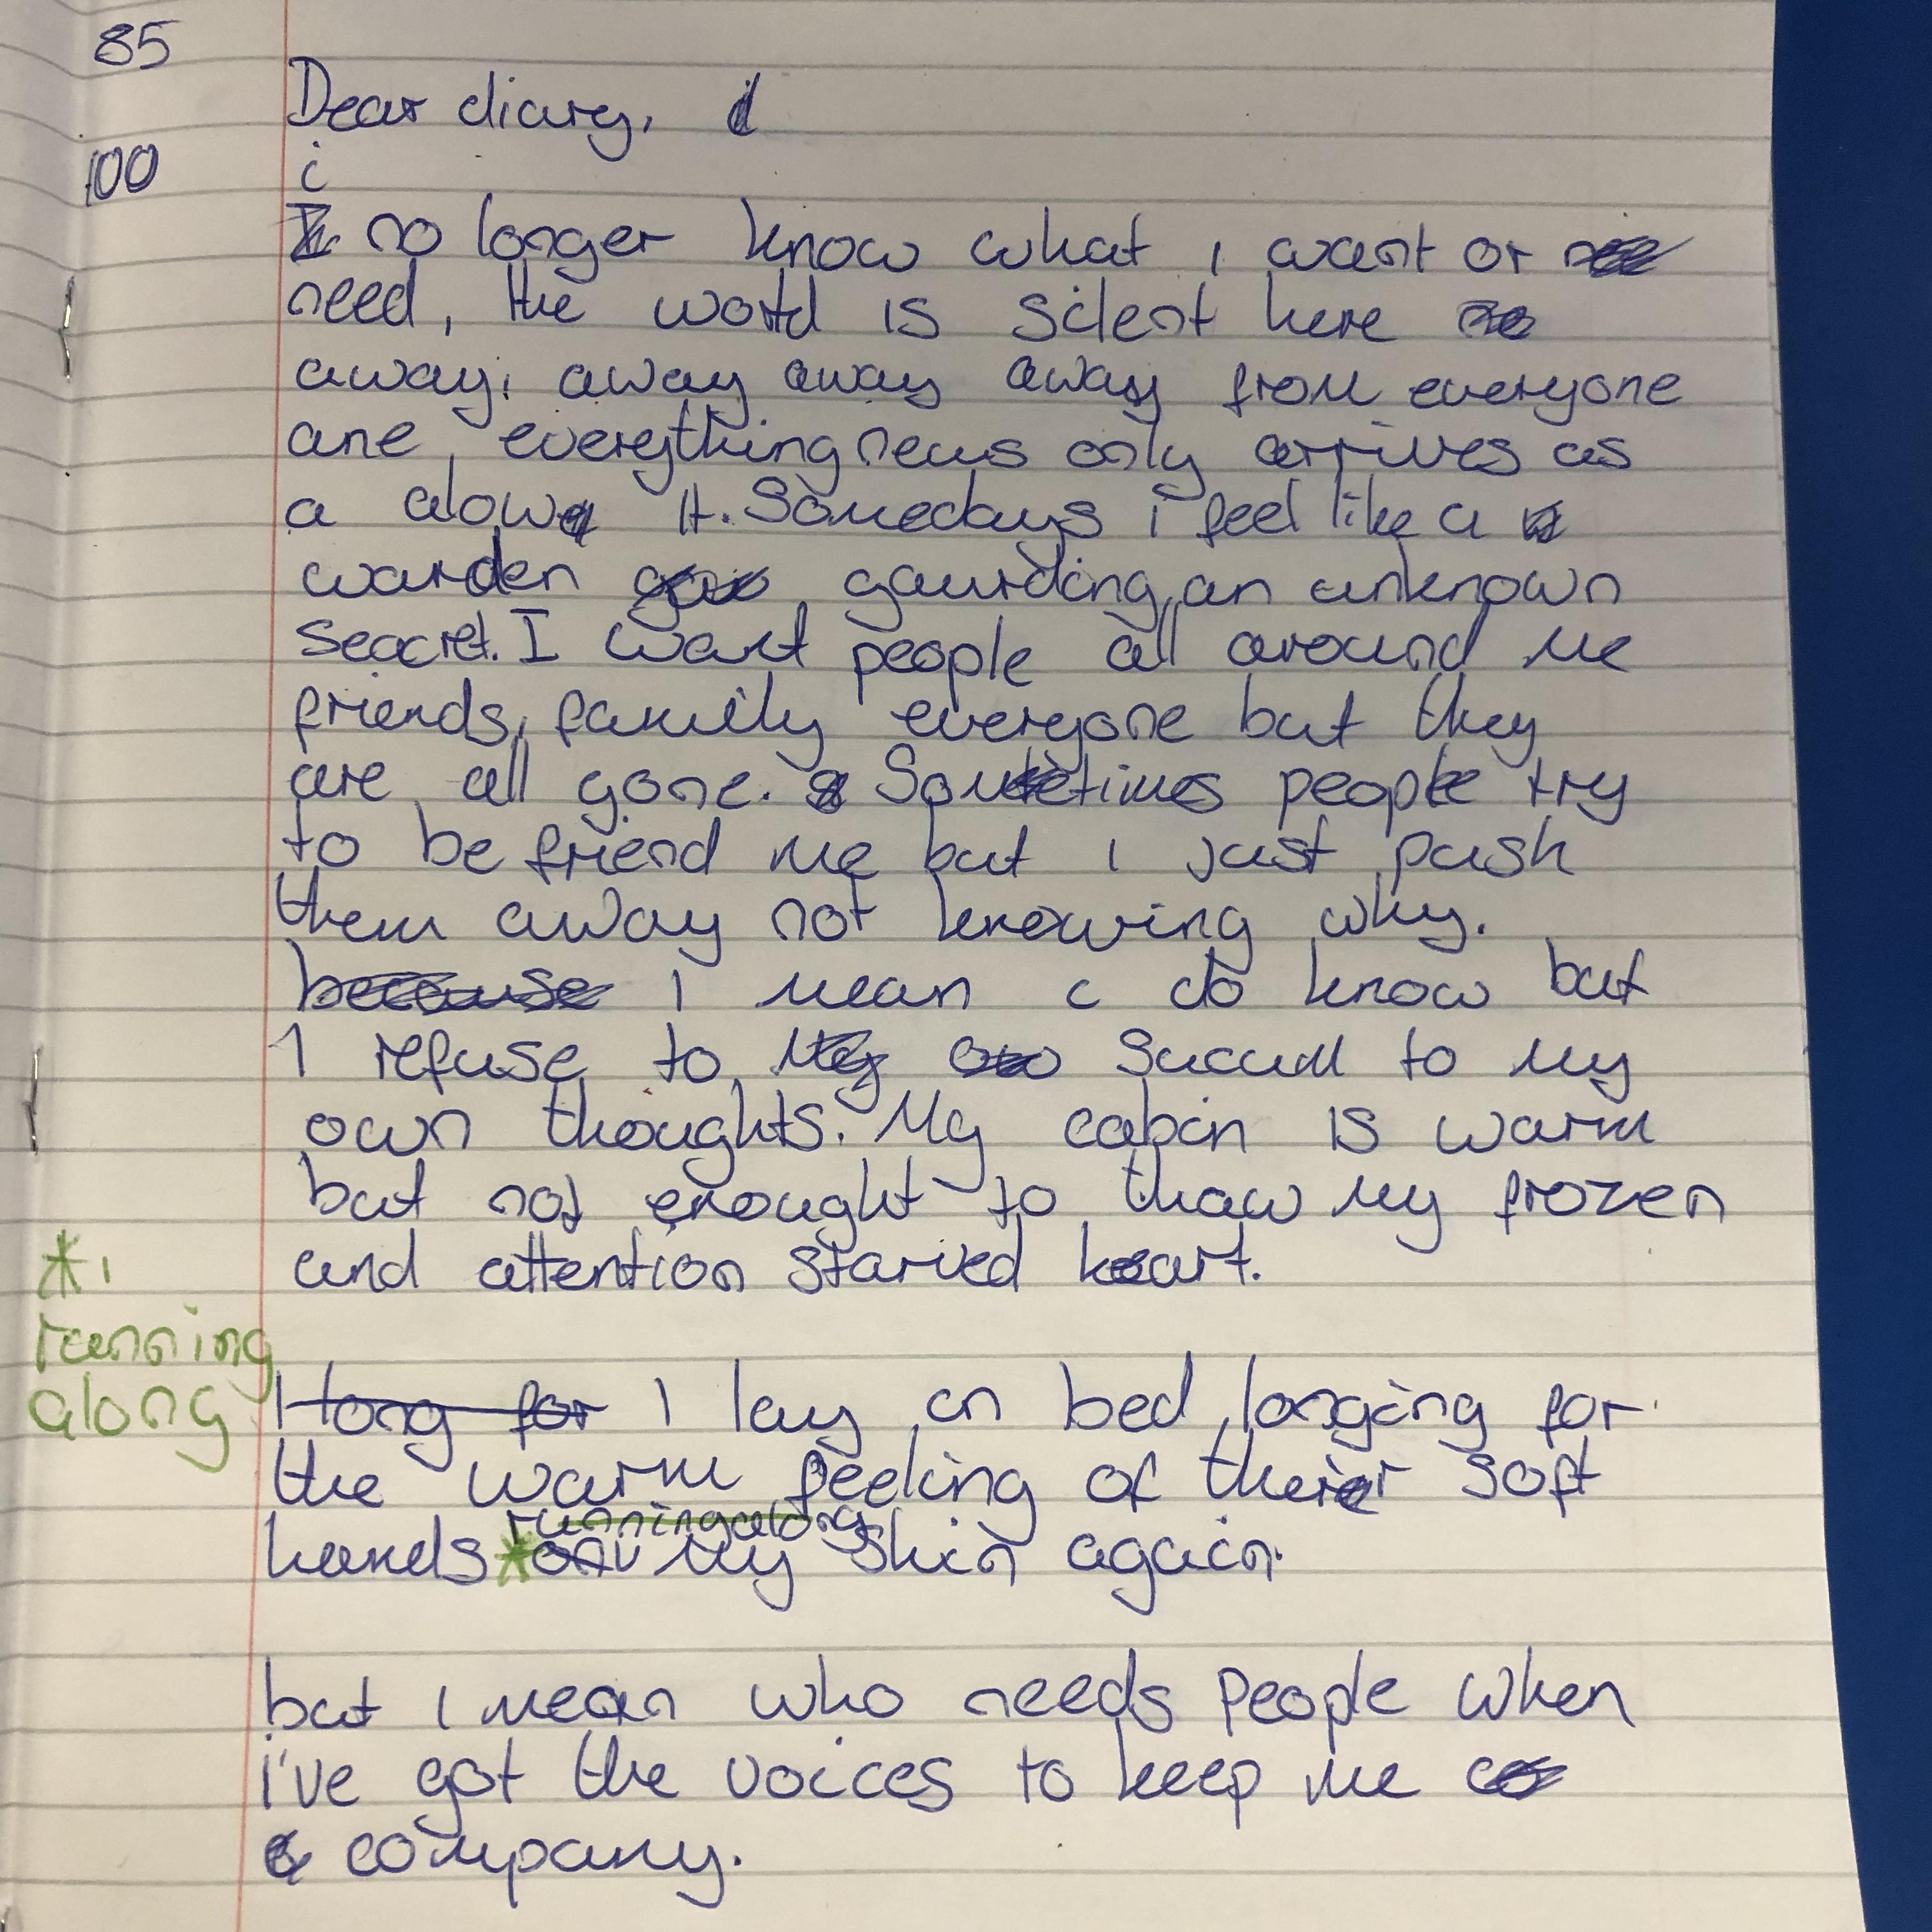 85
Dear diary,
100
i
no longer know what i want or
need, the world is silent here
away, away away away from everyone
ane everything news only arrives as
a alow it. Somedays i feel like a
warden gaurding an unknown
seacret. I want people all around me
friends, family everyone but they
are all gone. Sometimes people try
to be friend me but i just push
them away not knowing why.
because I mean i do know but
I refuse to my succum to my
own thoughts. My cabin is warm
but not enought to thaw my frozen
and attention starved heart.
*1
running
along
I long for I lay in bed longing for
the warm feeling of their soft
running along
hands * on my skin again.
but i mean who needs people when
i've got the voices to keep me
company.